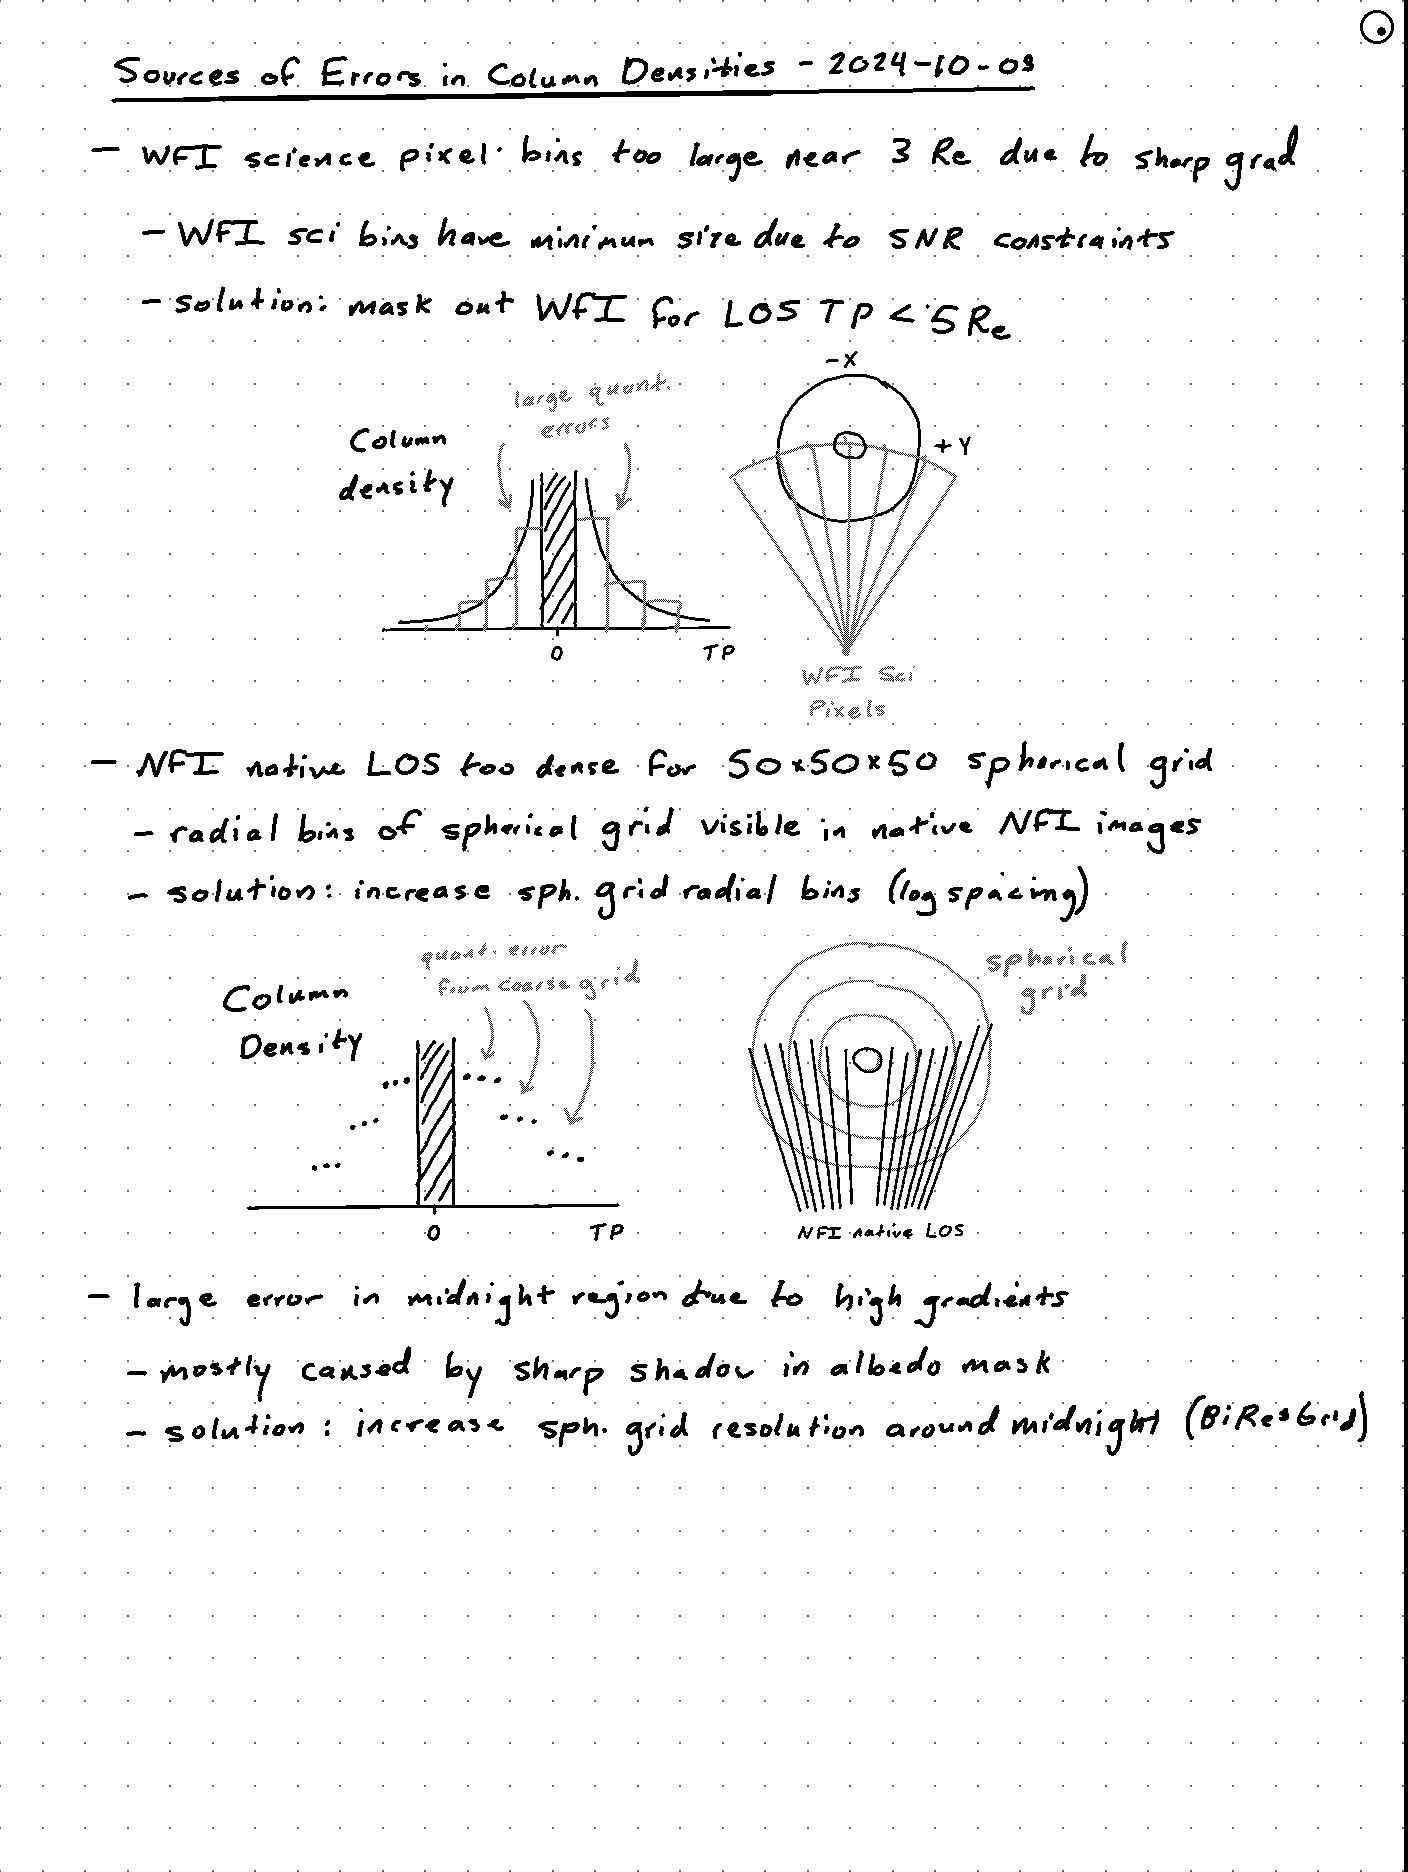 Sources of Errors in Column Densities - 2024-10-08
- WFI science pixel bins too large near 3 Re due to sharp grad
- WFI sci bins have minimun size due to SNR constraints
- solution: mask out WFI for LOS TP < 5 Re
-X
large quant.
errors
Column
density
+Y
0
TP
WFI Sci
Pixels
- NFI native LOS too dense for 50x50x50 spherical grid
- radial bins of spherical grid visible in native NFI images
- solution: increase sph. grid radial bins (log spacing)
quant. error
from coarse grid
Column
Density
spherical
grid
0
TP
NFI native LOS
- large error in midnight region due to high gradients
- mostly caused by sharp shadow in albedo mask
- solution: increase sph. grid resolution around midnight (BiResGrid)